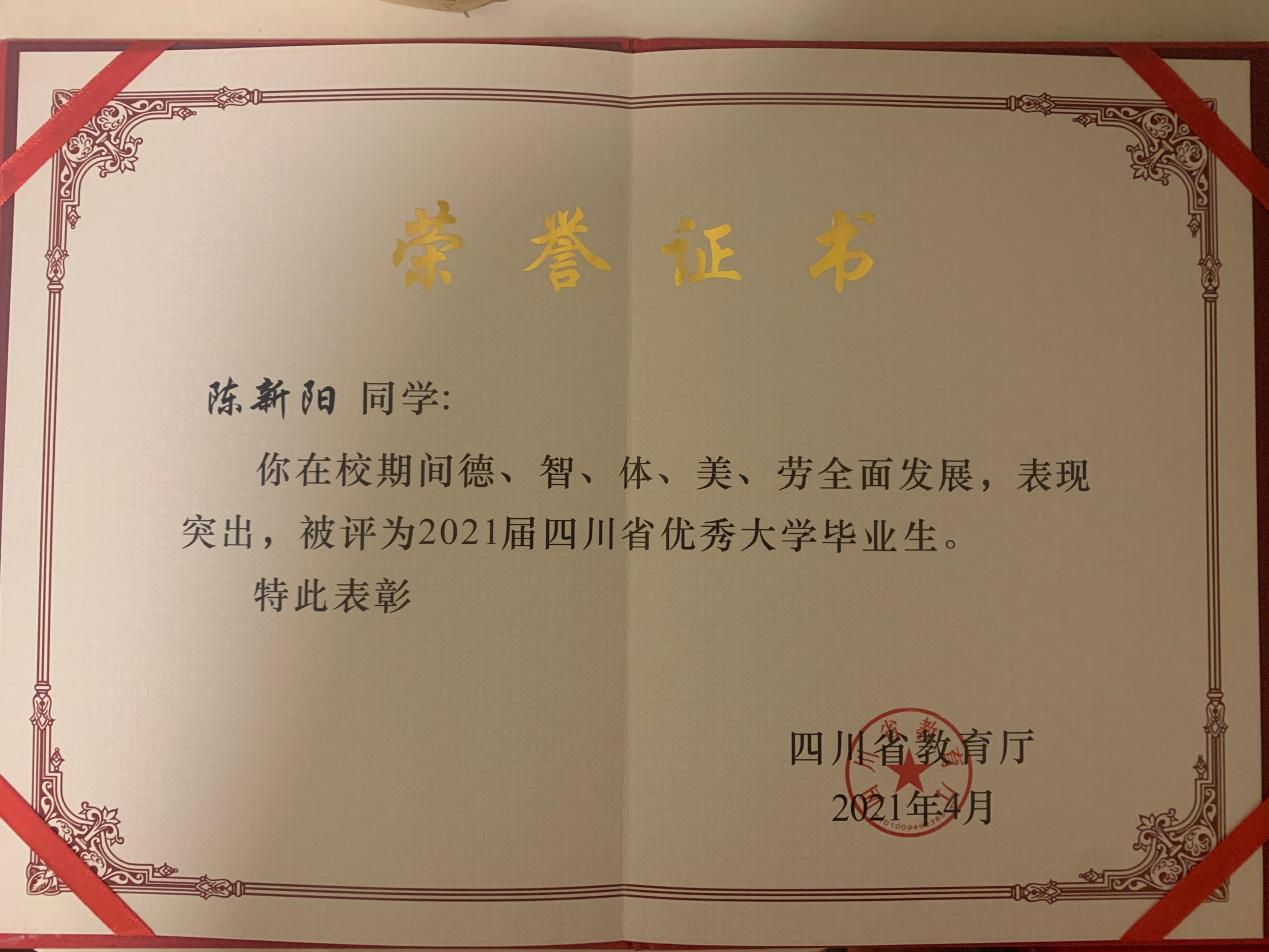 荣誉证书
陈新阳 同学:
你在校期间德、智、体、美、劳全面发展，表现
突出，被评为2021届四川省优秀大学毕业生。
特此表彰
四川省教育厅
2021年4月
四川省教育厅